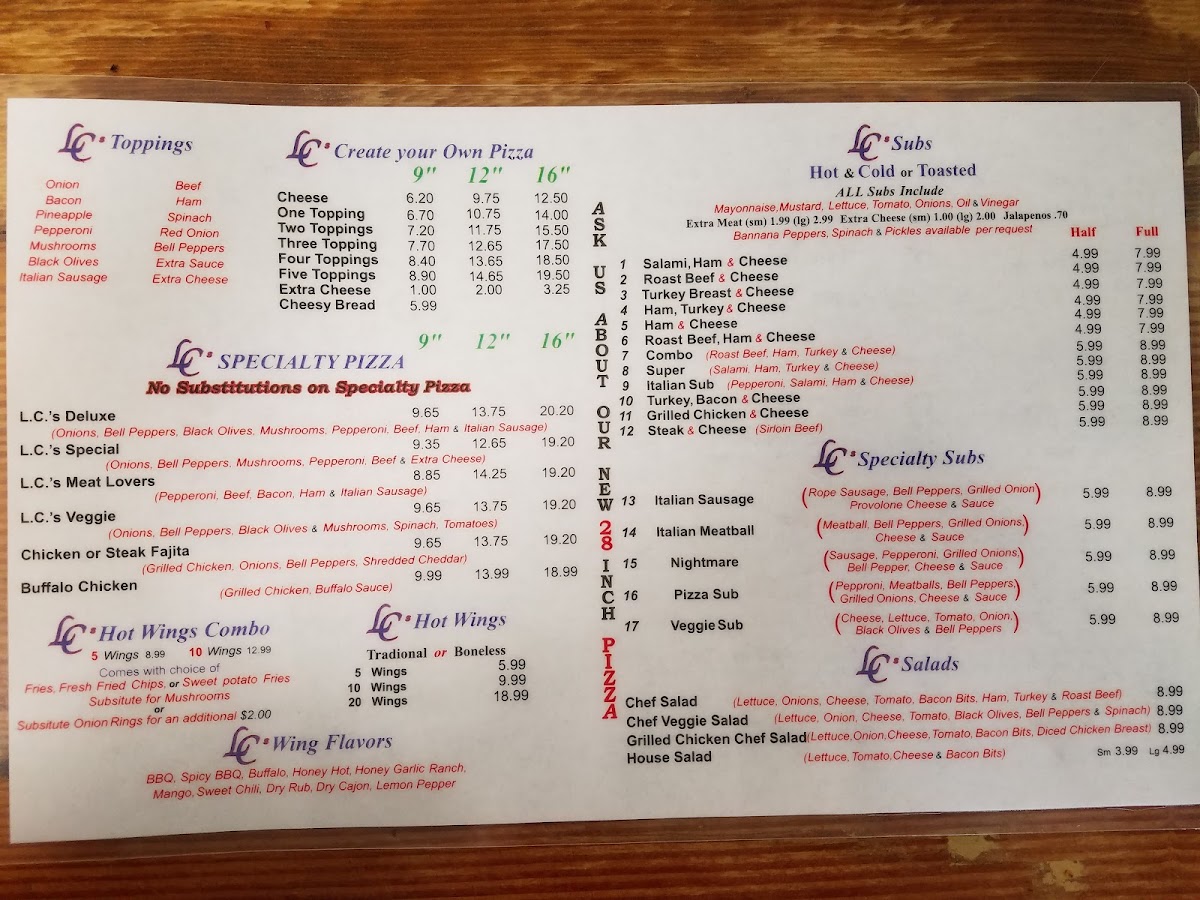 LC's Toppings
Onion Beef
Bacon Ham
Pineapple Spinach
Pepperoni Red Onion
Mushrooms Bell Peppers
Black Olives Extra Sauce
Italian Sausage Extra Cheese
LC's Create your Own Pizza
9" 12" 16"
Cheese 6.20 9.75 12.50
One Topping 6.70 10.75 14.00
Two Toppings 7.20 11.75 15.50
Three Topping 7.70 12.65 17.50
Four Toppings 8.40 13.65 18.50
Five Toppings 8.90 14.65 19.50
Extra Cheese 1.00 2.00 3.25
Cheesy Bread 5.99
9" 12" 16"
LC's SPECIALTY PIZZA
No Substitutions on Specialty Pizza
L.C.'s Deluxe 9.65 13.75 20.20
(Onions, Bell Peppers, Black Olives, Mushrooms, Pepperoni, Beef, Ham & Italian Sausage)
L.C.'s Special 9.35 12.65 19.20
(Onions, Bell Peppers, Mushrooms, Pepperoni, Beef & Extra Cheese)
L.C.'s Meat Lovers 8.85 14.25 19.20
(Pepperoni, Beef, Bacon, Ham & Italian Sausage)
L.C.'s Veggie 9.65 13.75 19.20
(Onions, Bell Peppers, Black Olives & Mushrooms, Spinach, Tomatoes)
Chicken or Steak Fajita 9.65 13.75 19.20
(Grilled Chicken, Onions, Bell Peppers, Shredded Cheddar)
Buffalo Chicken 9.99 13.99 18.99
(Grilled Chicken, Buffalo Sauce)
LC's Hot Wings Combo
5 Wings 8.99 10 Wings 12.99
Comes with choice of
Fries, Fresh Fried Chips, or Sweet potato Fries
Subsitute for Mushrooms
or
Subsitute Onion Rings for an additional $2.00
LC's Hot Wings
Tradional or Boneless
5 Wings 5.99
10 Wings 9.99
20 Wings 18.99
LC's Wing Flavors
BBQ, Spicy BBQ, Buffalo, Honey Hot, Honey Garlic Ranch,
Mango, Sweet Chili, Dry Rub, Dry Cajon, Lemon Pepper
ASK US ABOUT OUR NEW 28 INCH PIZZA
LC's Subs
Hot & Cold or Toasted
ALL Subs Include
Mayonnaise,Mustard, Lettuce, Tomato, Onions, Oil & Vinegar
Extra Meat (sm) 1.99 (lg) 2.99 Extra Cheese (sm) 1.00 (lg) 2.00 Jalapenos .70
Bannana Peppers, Spinach & Pickles available per request
Half Full
1 Salami, Ham & Cheese 4.99 7.99
2 Roast Beef & Cheese 4.99 7.99
3 Turkey Breast & Cheese 4.99 7.99
4 Ham, Turkey & Cheese 4.99 7.99
5 Ham & Cheese 4.99 7.99
6 Roast Beef, Ham & Cheese 4.99 7.99
7 Combo (Roast Beef, Ham, Turkey & Cheese) 5.99 8.99
8 Super (Salami, Ham, Turkey & Cheese) 5.99 8.99
9 Italian Sub (Pepperoni, Salami, Ham & Cheese) 5.99 8.99
10 Turkey, Bacon & Cheese 5.99 8.99
11 Grilled Chicken & Cheese 5.99 8.99
12 Steak & Cheese (Sirloin Beef) 5.99 8.99
LC's Specialty Subs
13 Italian Sausage (Rope Sausage, Bell Peppers, Grilled Onion 5.99 8.99
Provolone Cheese & Sauce)
14 Italian Meatball (Meatball, Bell Peppers, Grilled Onions, 5.99 8.99
Cheese & Sauce)
15 Nightmare (Sausage, Pepperoni, Grilled Onions, 5.99 8.99
Bell Pepper, Cheese & Sauce)
16 Pizza Sub (Pepproni, Meatballs, Bell Peppers, 5.99 8.99
Grilled Onions, Cheese & Sauce)
17 Veggie Sub (Cheese, Lettuce, Tomato, Onion, 5.99 8.99
Black Olives & Bell Peppers)
LC's Salads
Chef Salad (Lettuce, Onions, Cheese, Tomato, Bacon Bits, Ham, Turkey & Roast Beef) 8.99
Chef Veggie Salad (Lettuce, Onion, Cheese, Tomato, Black Olives, Bell Peppers & Spinach) 8.99
Grilled Chicken Chef Salad(Lettuce,Onion,Cheese,Tomato,Bacon Bits, Diced Chicken Breast) 8.99
House Salad (Lettuce,Tomato,Cheese & Bacon Bits) Sm 3.99 Lg 4.99